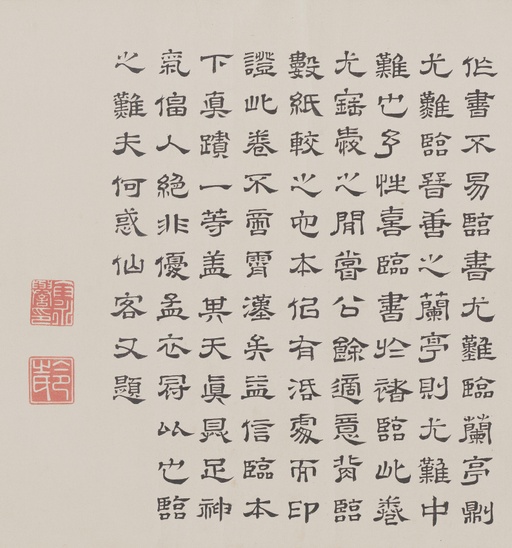 作書不易臨書尤難臨蘭亭則
尤難臨晉善之蘭亭則尤難中
難也予性喜臨書於褚臨此卷
尤之間嘗公餘適意背臨
數紙較之他本似有活處而印
證此卷不啻霄漢矣益信臨本
下真蹟一等蓋其天真具足神
氣偪人絕非優孟衣冠以也臨
之難夫何惑仙客又題